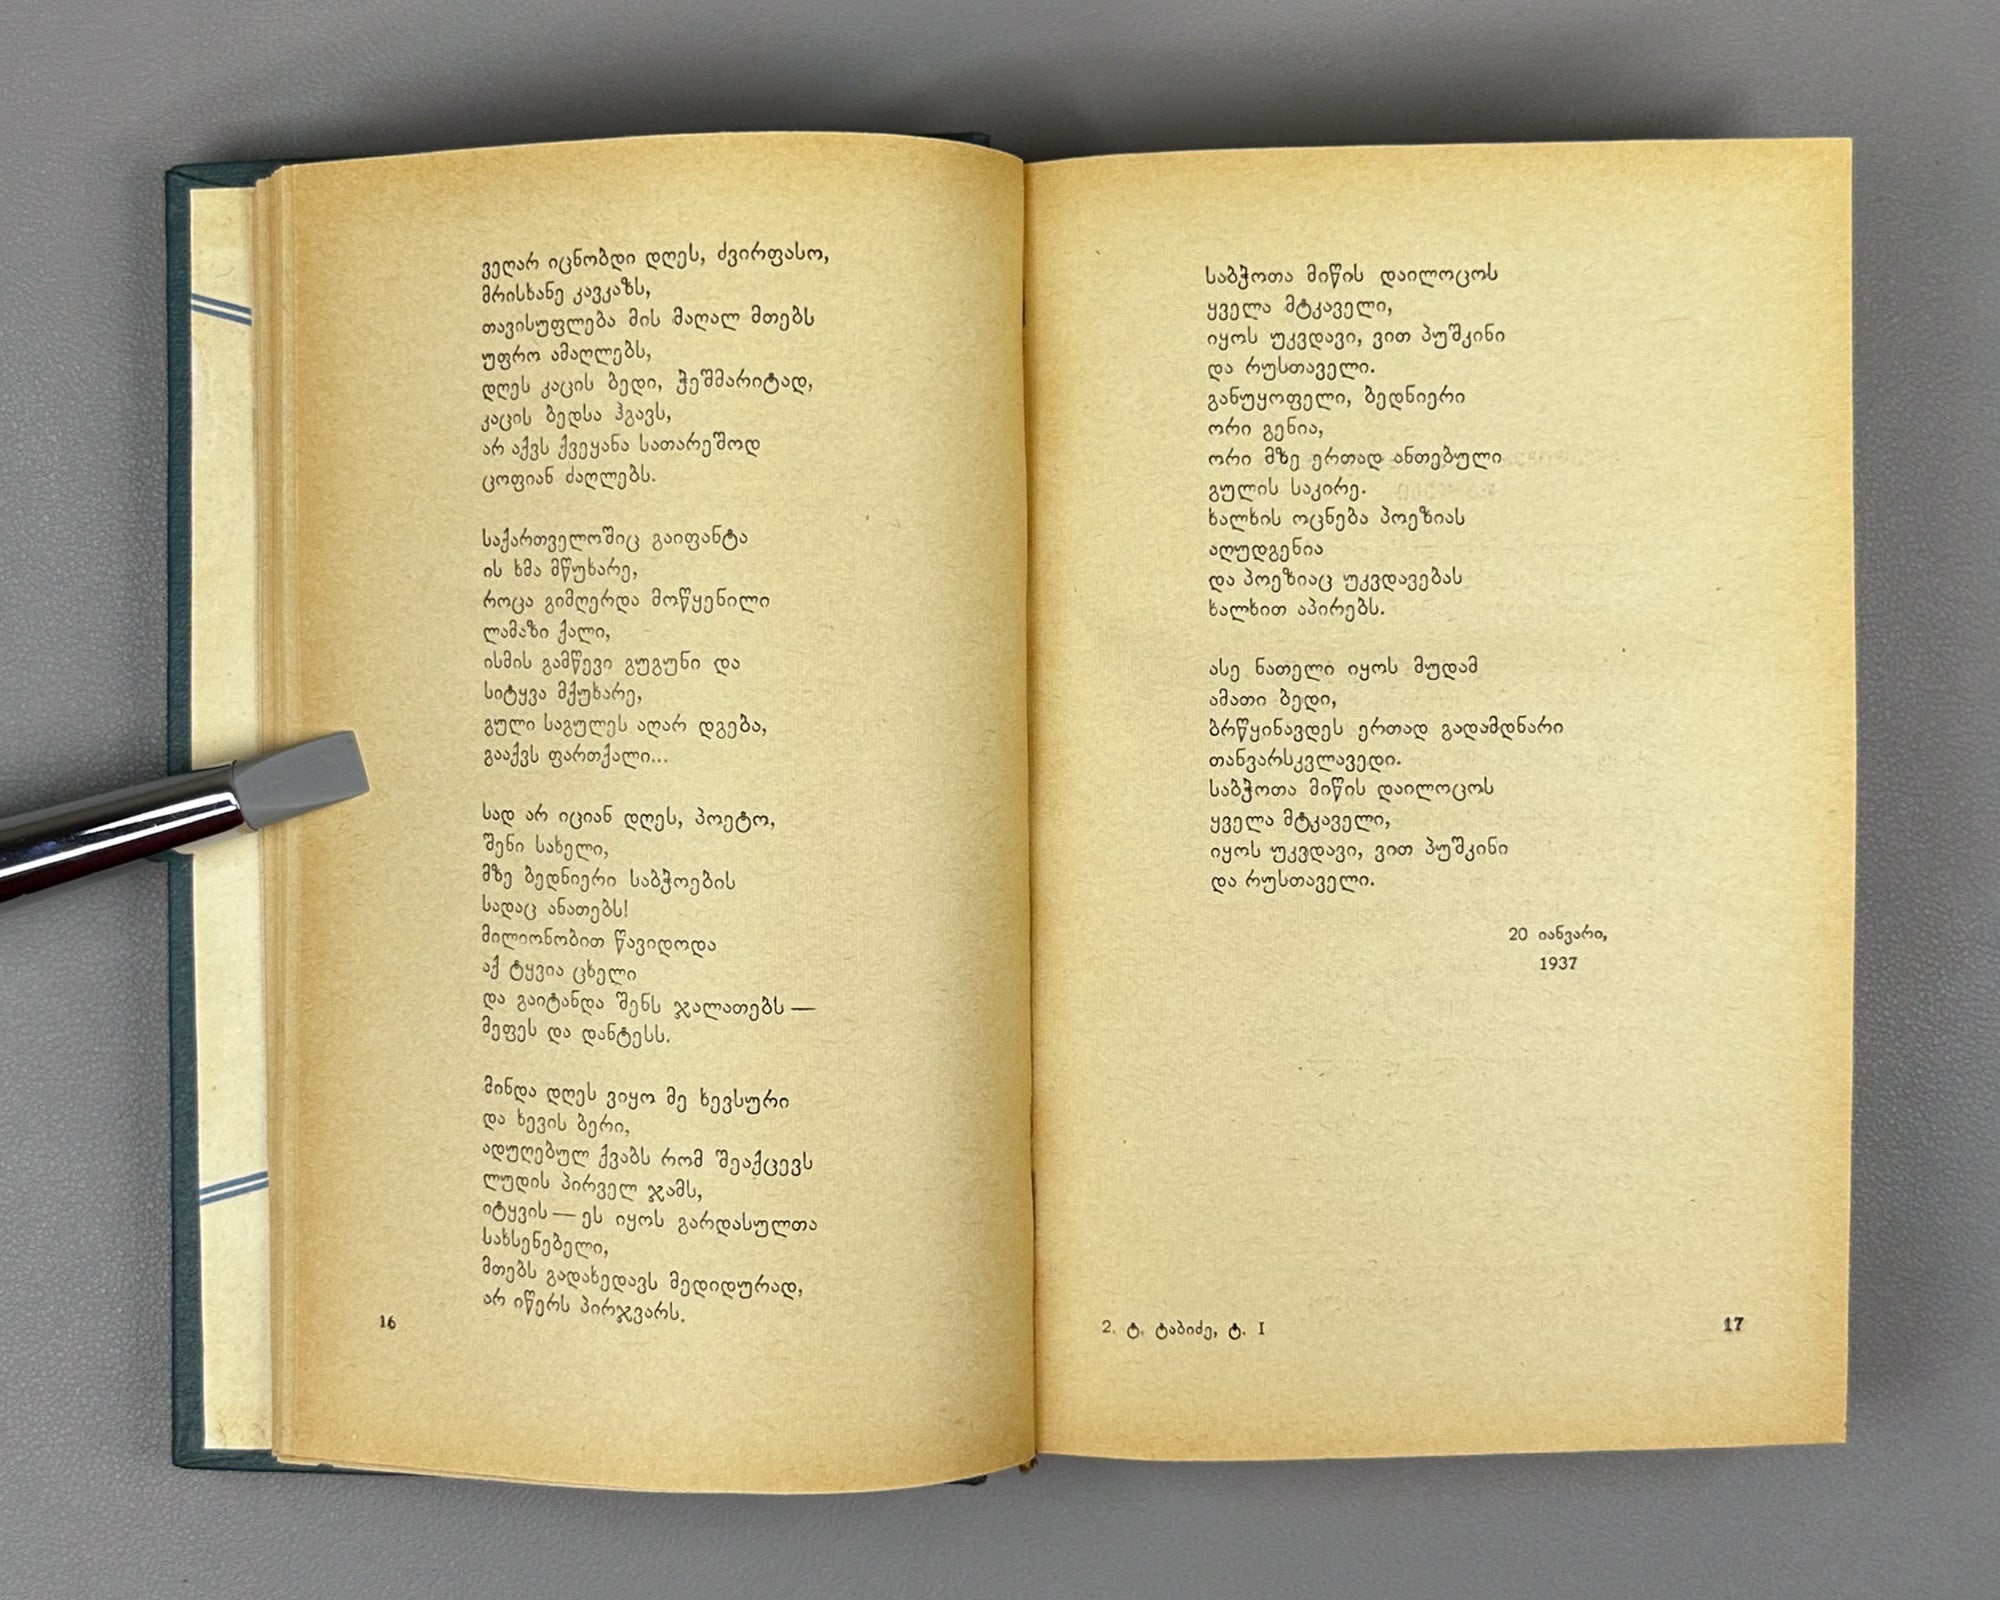 ვეღარ იცნობდი დღეს, ძვირფასო,
მრისხანე კავკაზს,
თავისუფლება მის მაღალ მთებს
უფრო ამაღლებს,
დღეს კაცის ბედი, ჭეშმარიტად,
კაცის ბედსა ჰგავს,
არ აქვს ქვეყანა სათარეშოდ
ცოფიან ძაღლებს.
საქართველოშიც გაიფანტა
ის ხმა მწუხარე,
როცა გიმღერდა მოწყენილი
ლამაზი ქალი,
ისმის გამწევი გუგუნი და
სიტყვა მქუხარე,
გული საგულეს აღარ დგება,
გააქვს ფართქალი...
სად არ იციან დღეს, პოეტო,
შენი სახელი,
მზე ბედნიერი საბჭოების
სადაც ანათებს!
მილიონობით წავიდოდა
აქ ტყვია ცხელი
და გაიტანდა შენს ჯალათებს —
მეფეს და დანტესს.
მინდა დღეს ვიყო მე ხევსური
და ხევის ბერი,
ადუღებულ ქვაბს რომ შეაქცევს
ლუდის პირველ ჯამს,
იტყვის — ეს იყოს გარდასულთა
სახსენებელი,
მთებს გადახედავს მედიდურად,
არ იწერს პირჯვარს.
16
საბჭოთა მიწის დაილოცოს
ყველა მტკაველი,
იყოს უკვდავი, ვით პუშკინი
და რუსთაველი.
განუყოფელი, ბედნიერი
ორი გენია,
ორი მზე ერთად ანთებული
გულის საკირე.
ხალხის ოცნება პოეზიას
აღუდგენია
და პოეზიაც უკვდავებას
ხალხით აპირებს.
ასე ნათელი იყოს მუდამ
ამათი ბედი,
ბრწყინავდეს ერთად გადამდნარი
თანვარსკვლავედი.
საბჭოთა მიწის დაილოცოს
ყველა მტკაველი,
იყოს უკვდავი, ვით პუშკინი
და რუსთაველი.
20 იანვარი,
1937
2. ტ. ტაბიძე, ტ. I
17